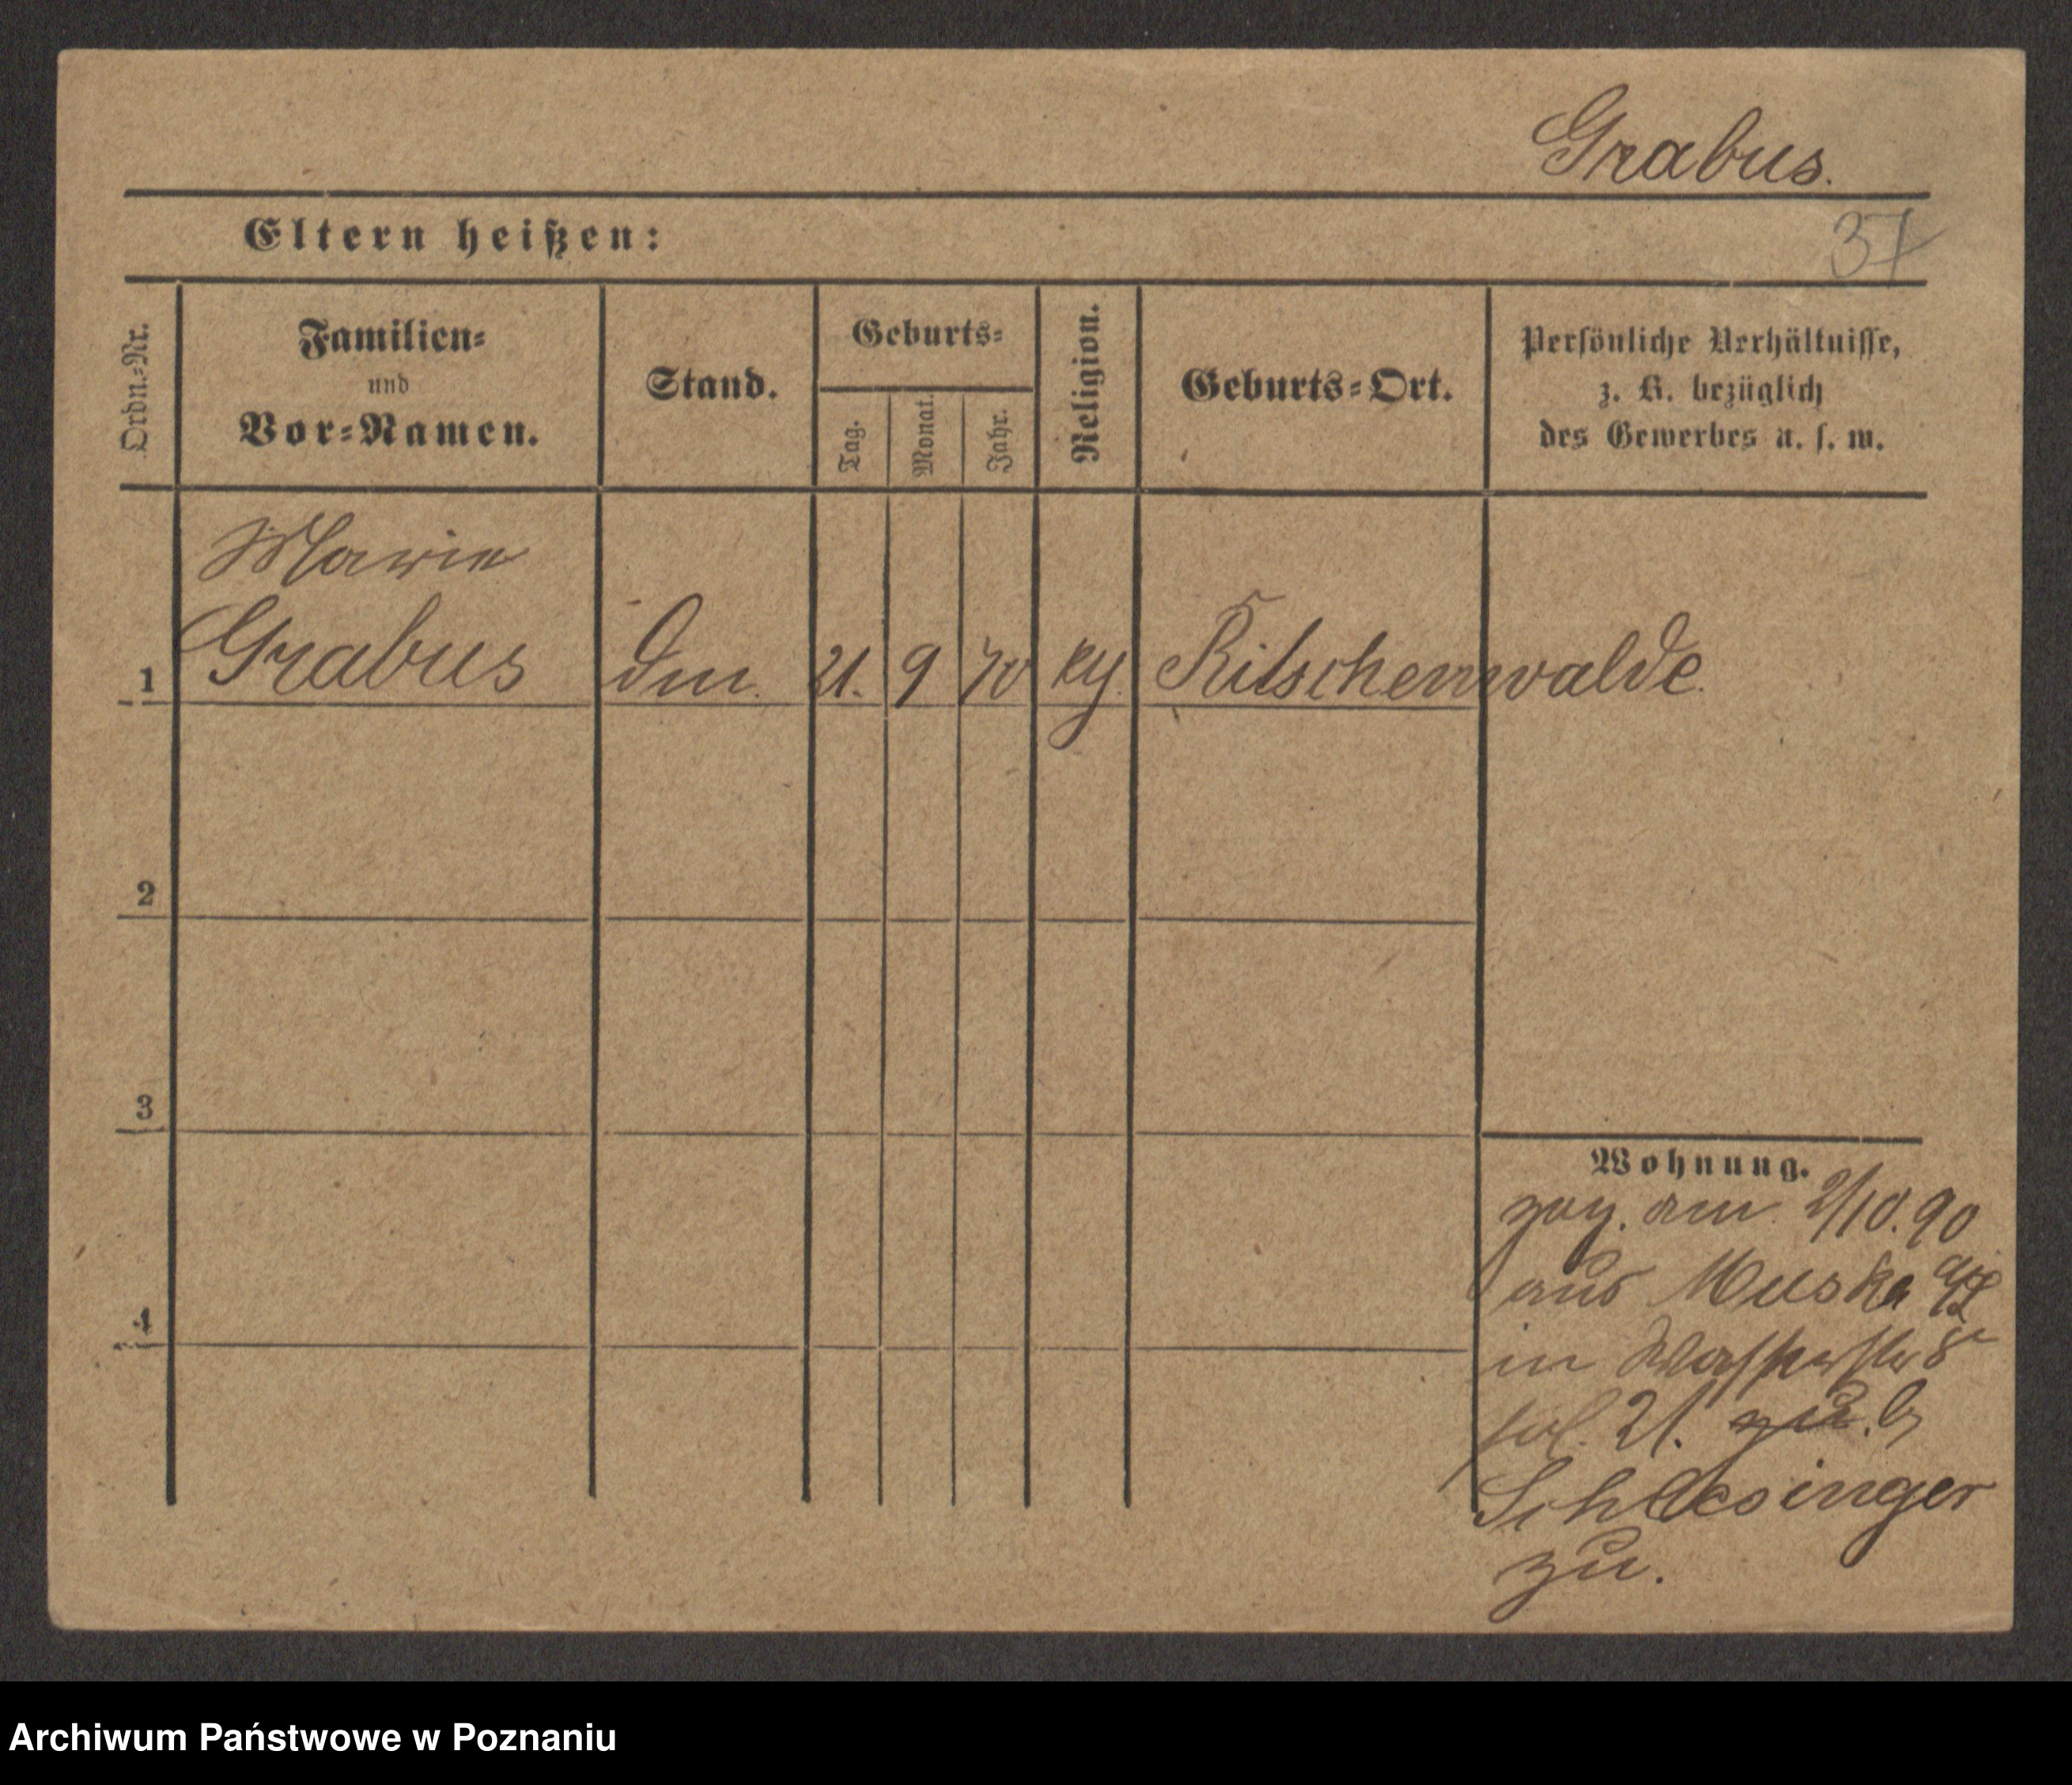 Grabus.
Eltern heißen:
37
Ordn.-Nr.
Familien-
und
Vor-Namen.
Stand.
Geburts-
Tag.
Monat.
Jahr.
Religion.
Geburts-Ort.
Persönliche Verhältnisse,
z. B. bezüglich
des Gewerbes u. s. w.
Marie
1 Grabus 21. 9 70 Ritschenwalde
2
3
4
Wohnung.
zog. am 2/10. 90
aus
in
pol. 21. zu. b
Schlesinger
zu.
Archiwum Państwowe w Poznaniu